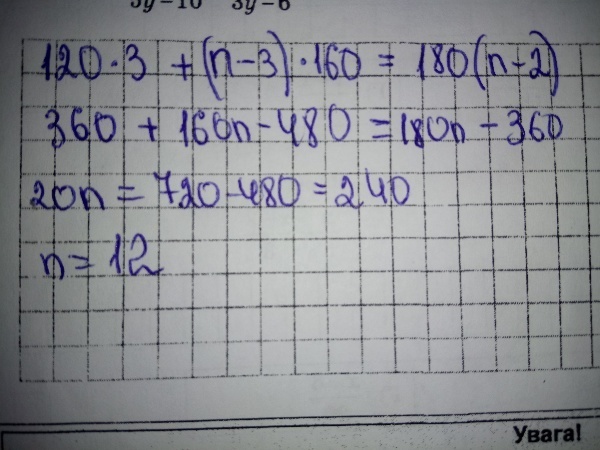 5y-10 3y-6
120·3 +(n-3)·160 = 180(n-2)
360 + 160n-480 =180n-360
20n = 720-480=240
n= 12
Увага!